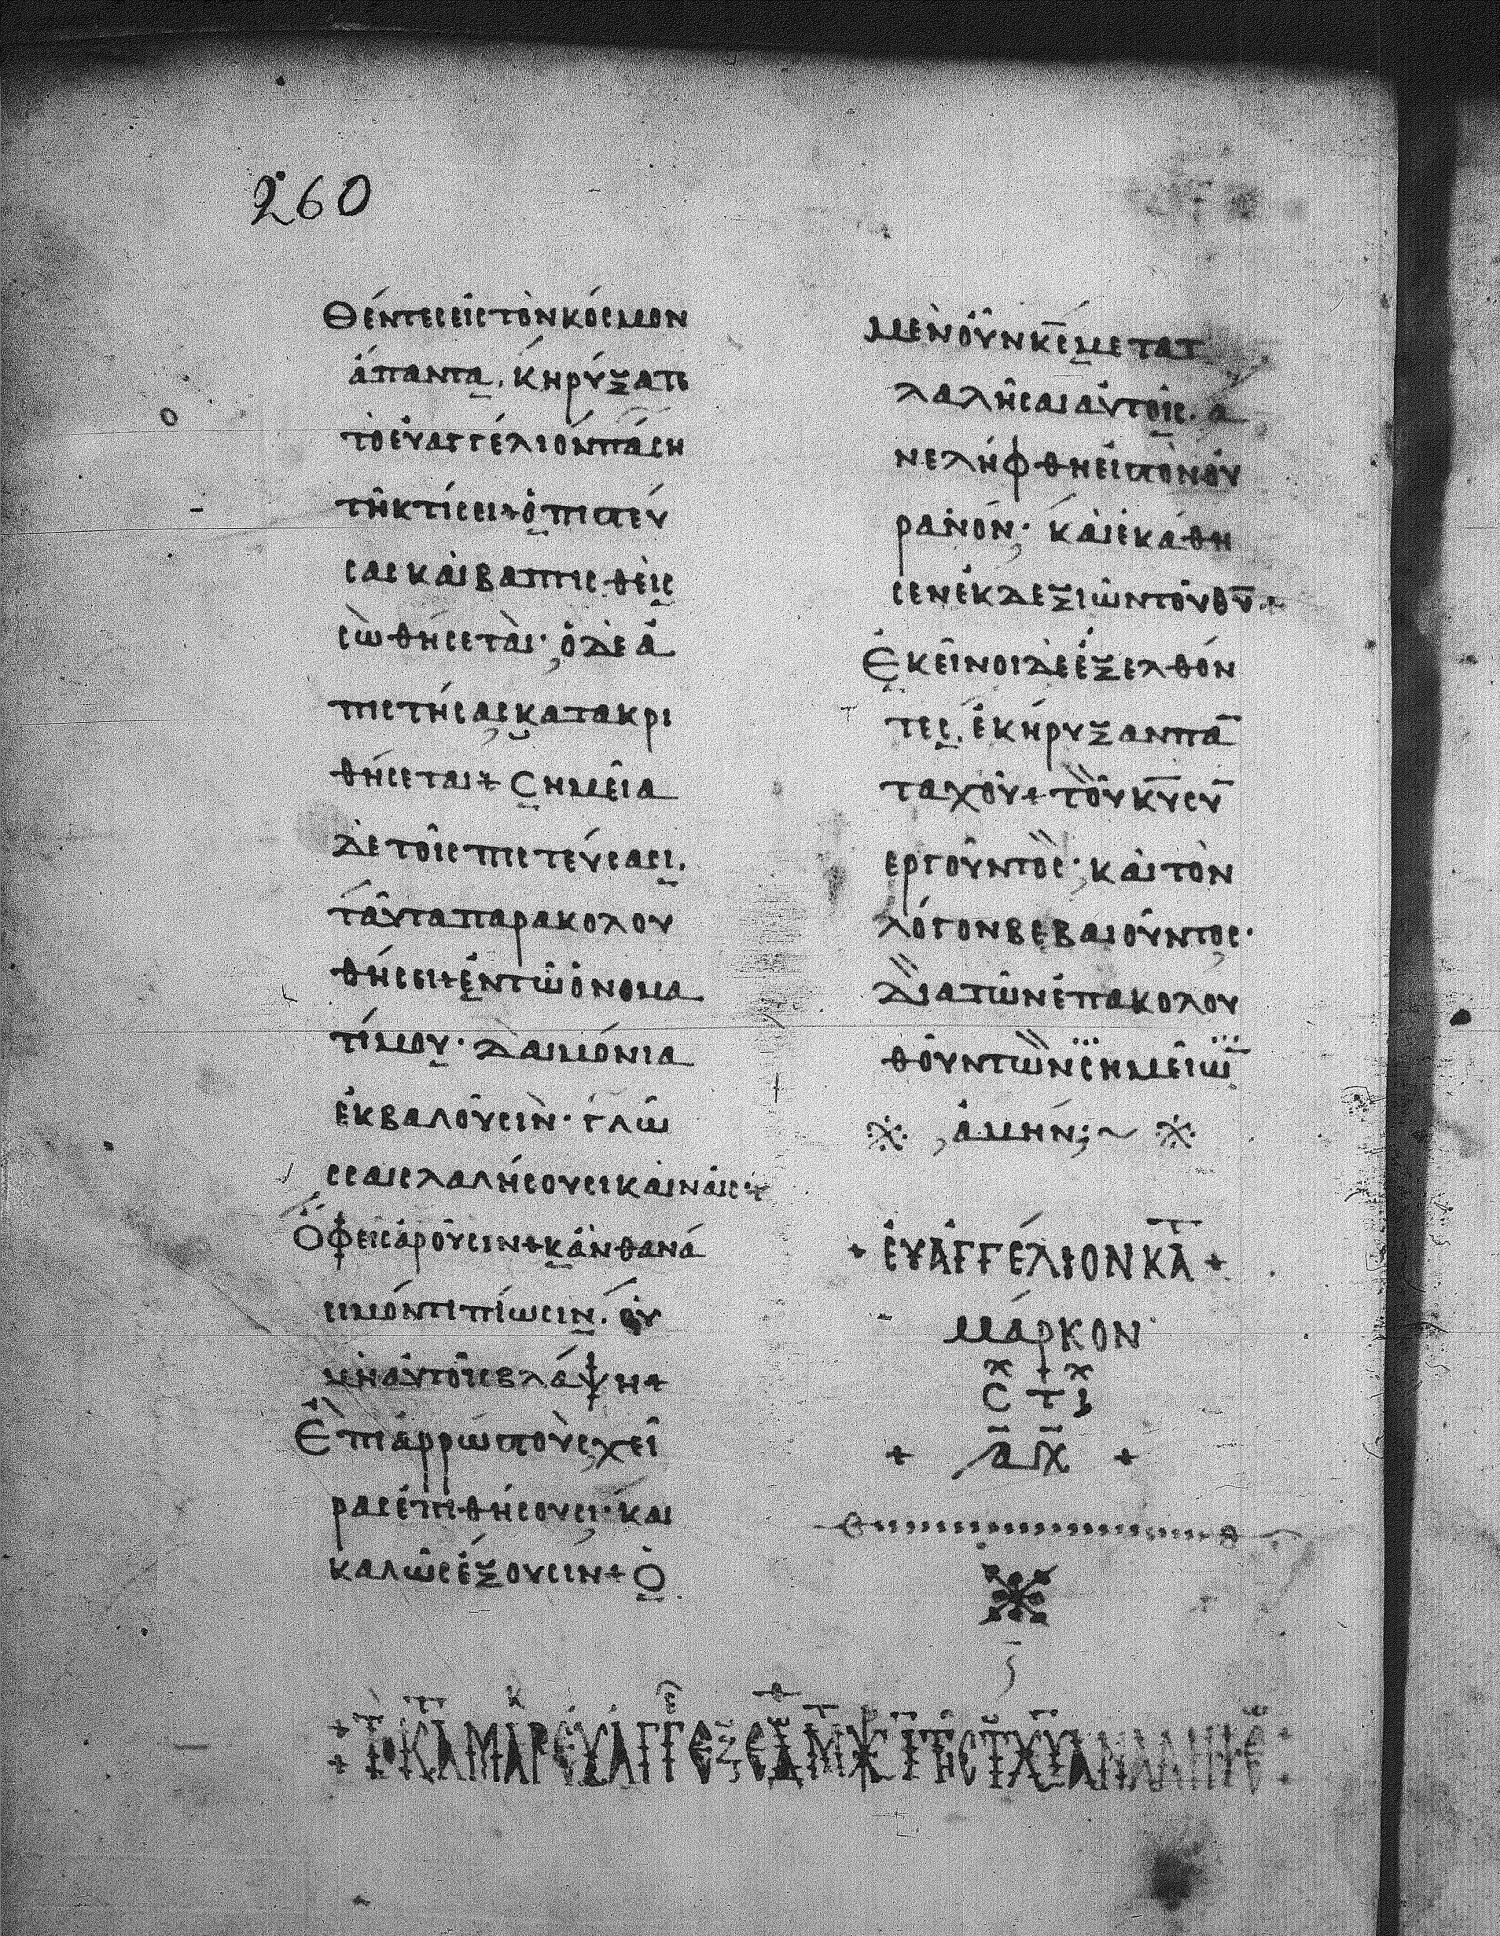 260
Θέντες εἰς τὸν κόσμον
ἅπαντα, κηρύξατε
τὸ εὐαγγέλιον πάση
τῆ κτίσει + ὁ πιστεύ
σας καὶ βαπτισθεὶς
σωθήσεται· ὁ δὲ ἀ
πιστήσας κατακρι
θήσεται + Σημεῖα
δὲ τοῖς πιστεύσασι,
ταῦτα παρακολου
θήσει + ἐν τῶ ὀνόμα
τί μου· δαιμόνια
ἐκβαλοῦσιν· γλώ
σσαις λαλήσουσι καιναῖς·
Ὄφεις ἀροῦσιν + κἂν θανά
σιμόν τι πίωσιν. οὐ
μὴ αὐτοῖς βλάψη +
Ἐπὶ ἀρρώστους χεῖ
ρας ἐπιθήσουσι· καὶ
καλῶς ἕξουσιν + Ὁ
μὲν οὖν κ̅ς̅ μετὰ τ
λαλῆσαι αὐτοῖς. ἀ
νελήφθη εἰς τὸν οὐ
ρανόν· καὶ ἐκάθη
σεν ἐκ δεξιῶν τοῦ θ̅υ̅ +
Ἐκεῖνοι δὲ ἐξελθόν
τες, ἐκήρυξαν πα̅
ταχοῦ + τοῦ κ̅υ̅ συ̅
εργοῦντος· καὶ τὸν
λόγον βεβαιοῦντος·
Διὰ τῶν ἐπακολου
θούντων σημείω̅
ἀμήν
+ ΕΥΑΓΓΕΛΙΟΝ ΚΑΤ +
ΜΑΡΚΟΝ